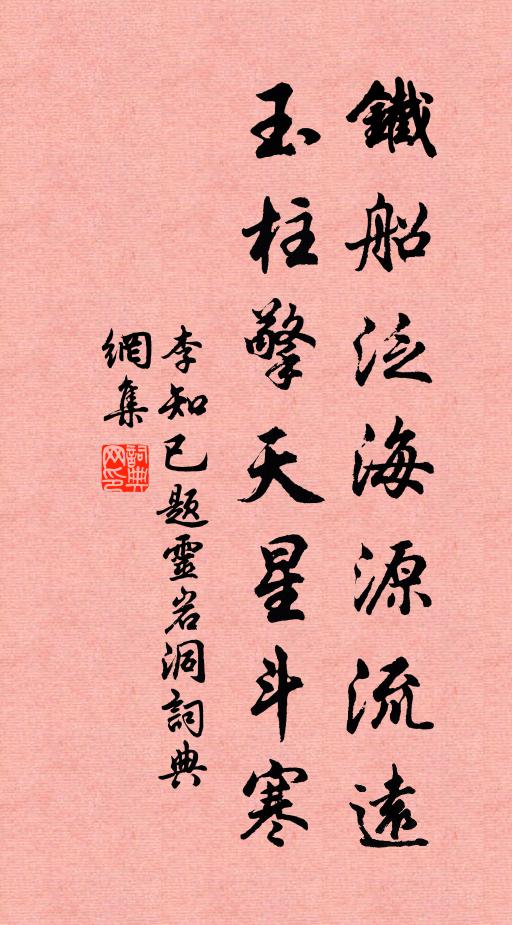 鐵船泛海源流遠
玉柱擎天星斗寒
李知已题靈岩洞詞典
網集
詞典
网印